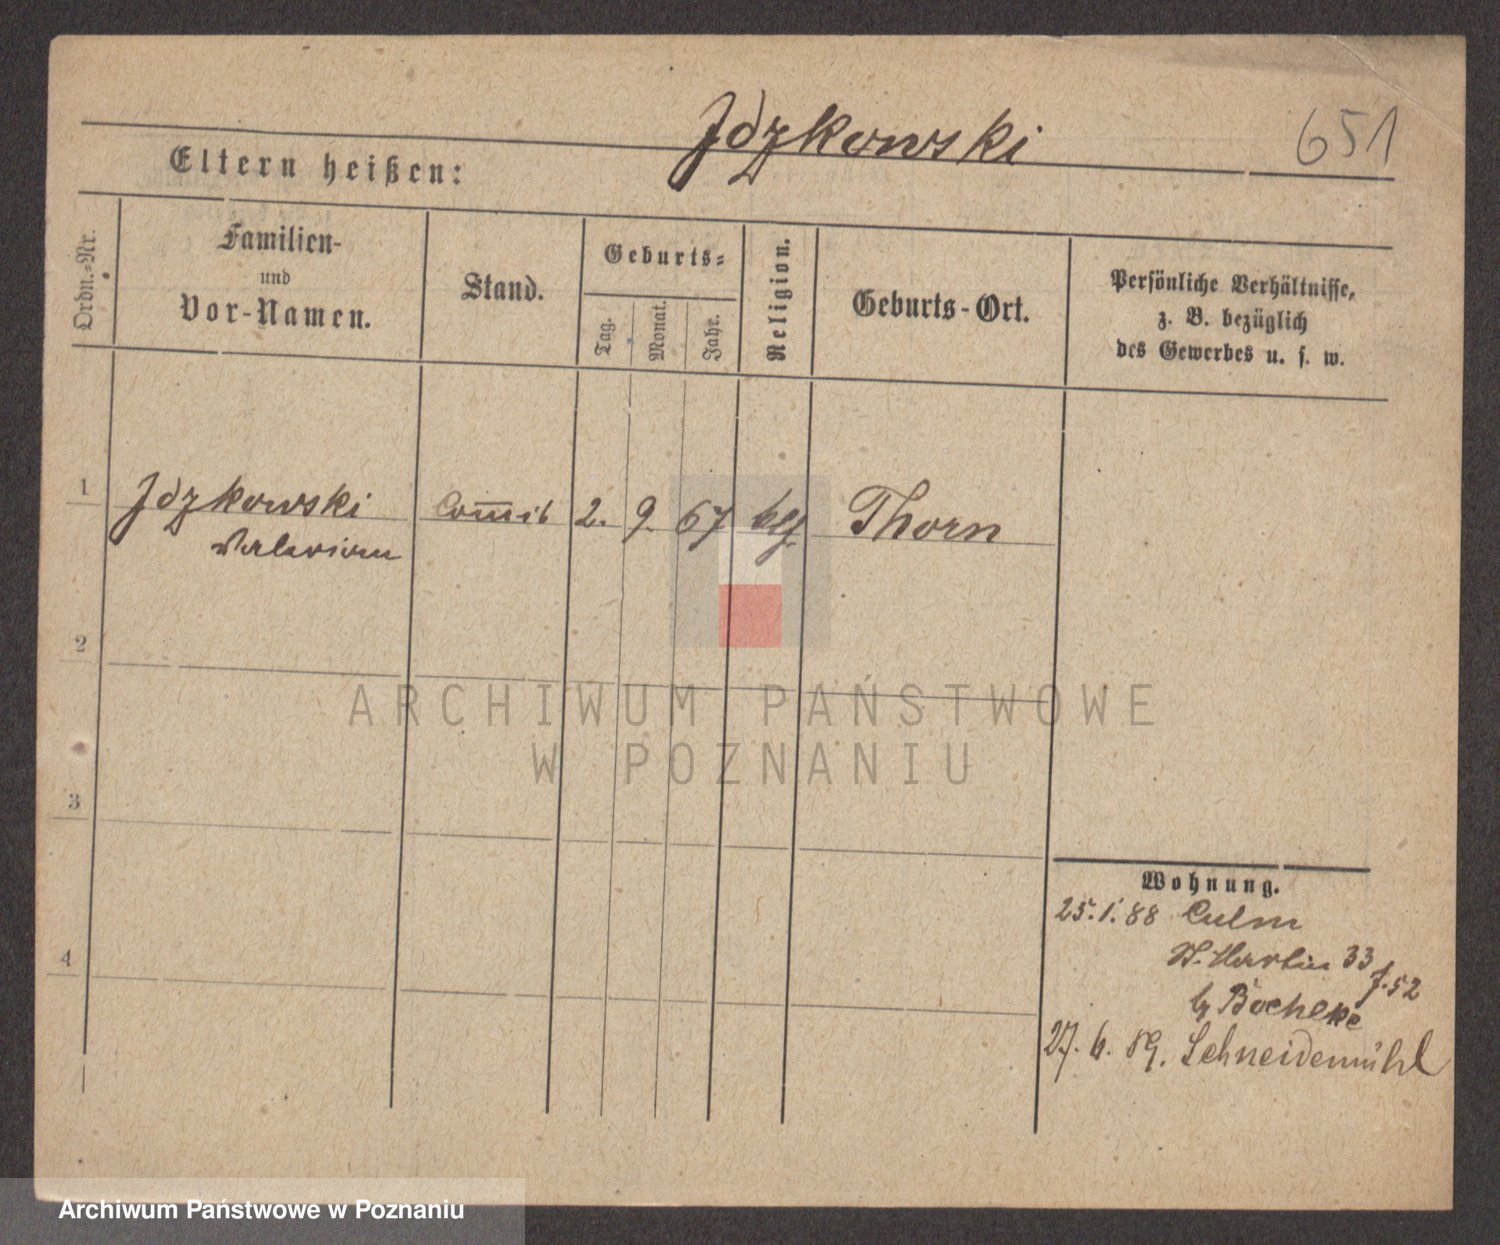 Jdzkowski
651
Eltern heißen:
Ordn.-Nr.
Familien-
und
Vor-Namen.
Stand.
Geburts-
Tag.
Monat.
Jahr.
Religion.
Geburts-Ort.
Persönliche Verhältnisse,
z. B. bezüglich
des Gewerbes u. s. w.
1
Jdzkowski
Valerian
Com̅is
2.
9.
67
Thorn
2
ARCHIWUM PAŃSTWOWE
W POZNANIU
3
4
Wohnung.
25.1.88 Culm
St. Martin 33
f. 52
27. 6. 89. Schneidemühl
Archiwum Państwowe w Poznaniu